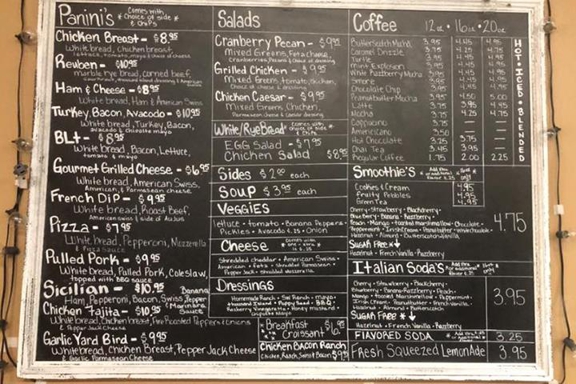 Panini's Comes with
choice of side
& chips
Chicken Breast - $8.95
White bread, Chicken breast,
lettuce, tomato, mayo & choice of cheese
Reuben - $10.95
marble rye bread, corned beef,
Ham & Cheese - $8.95
White bread, Ham & American Swiss
Turkey, Bacon, Avacodo - $10.95
White bread, Turkey, Bacon,
avocado & chipotle mayo
BLT - $8.95
White bread, Bacon, Lettuce,
tomato & mayo
Gourmet Grilled Cheese - $6.95
White bread, American, Swiss,
American, & Parmesean cheese
French Dip - $9.95
White bread, Roast Beef,
American, Swiss & side of AuJus
Pizza - $7.95
White bread, Pepperoni, Mozzerella
& Pizza Sauce
Pulled Pork - $9.95
White bread, Pulled Pork, Coleslaw,
topped with BBQ sauce
Sicilian - $10.95 Banana
Ham, Pepperoni, Bacon, Swiss, Pepper
Chicken Fajita - $10.95 (Marinara Sauce
White bread, Chicken breast, Fire Roasted Pepper & Onions
& Pepper Jack Cheese
Garlic Yard Bird - 9.95
White bread, Chicken Breast, Pepper Jack Cheese
& Garlic Parmasean Cheese
Salads
Cranberry Pecan - $9.95
Mixed Greens, Feta cheese,
Cranberries, Pecans & choice of dressing
Grilled Chicken - $9.95
Mixed Greens, tomato, Bacon,
Chicken & choice of dressing
Chicken Caesar - $9.95
Mixed Greens, Chicken,
Parmesan cheese & Caesar dressing
White/Rye Bread Comes with
choice of side
& Chips
EGG Salad - $7.95
Chicken Salad $8.95
Sides $2.00 each
Soup $3.95 each
Veggies
lettuce • tomato • Banana Peppers •
Pickles • Avocado 1.25 • Onion
Cheese
Shredded cheddar • American • Swiss
American • Feta • Shredded Parmesean •
Pepper Jack • shredded mozzarella
Dressings
Homemade Ranch • Fat Ranch • mayo
Thousand Island • Poppy Seed • BBQ •
Raspberry Vinaigrette • Honey mustard
Chipotle Mayo
Breakfast Croissant $6.95
Chicken Bacon Ranch
Chicken, Ranch, Swiss, Bacon $9.95
Coffee 12oz • 16oz • 20oz
Butterscotch Mocha 3.95 4.45 4.95
Caramel Drizzle 3.95 4.25 4.75
Turtle 3.95 4.45 4.95
Mint Explosion 3.95 4.45 4.95
White Raspberry Mocha 3.95 4.45 4.95
Smore 3.95 4.45 4.95
Chocolate Chip 3.95 4.45 4.95
Peanutbutter Mocha 3.95 4.50 5.00
Latte 3.75 3.95 4.45
Mocha 3.75 4.25 4.75
Cappucino 3.75
Americano 3.50
Hot Chocolate 3.25 3.75
Chai Tea 3.45 3.95
Regular Coffee 1.75 2.00 2.25
HOT • ICED • BLENDED
Smoothie's
Cookies & Cream 4.95
Fruity Pebbles 4.95
Green Tea 4.95
Cherry • Strawberry • Blackberry •
Blueberry • Banana • Raspberry •
Peach • Mango • toasted marshmallow • Chocolate •
Peppermint • Irish Cream •
Hazelnut • Almond • Butterscotch • Vanilla
Sugar Free ↓
Hazelnut • French Vanilla • Raspberry
4.75
Italian Soda's
Cherry • Strawberry • Blackberry •
Blueberry • Banana • Raspberry • Peach •
Mango • toasted Marshmellow • Peppermint •
Irish Cream •
Hazelnut • Almond •
Sugar Free ↓
Hazelnut • French Vanilla • Raspberry
3.95
Flavored Soda 3.25
Fresh Squeezed LemonAde 3.95